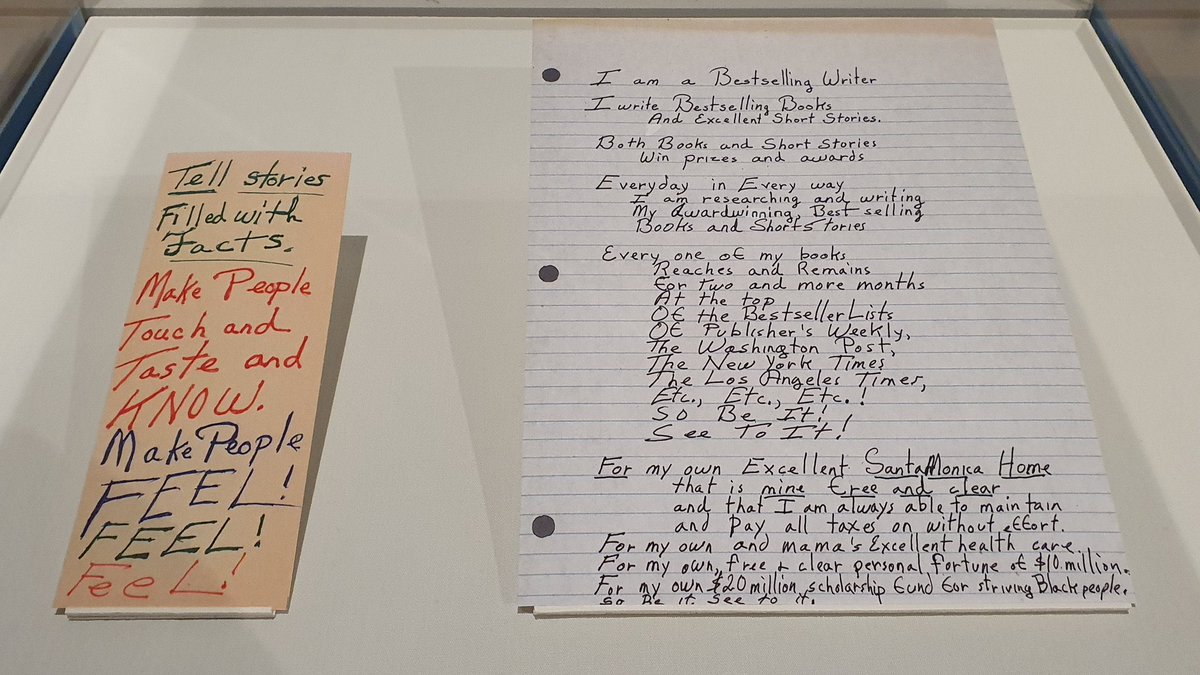 Tell stories
Filled with
Facts.
Make People
Touch and
Taste and
KNOW.
Make People
FEEL!
FEEL!
FeeL!
I am a Bestselling Writer
I write Bestselling Books
And Excellent Short Stories.
Both Books and Short Stories
Win prizes and awards
Everyday in Every way
I am researching and writing
My Awardwinning, Best selling
Books and Short Stories
Every one of my books
Reaches and Remains
for two and more months
At the top
Of the Bestseller Lists
Of Publisher's Weekly,
The Washington Post,
The New York Times
The Los Angeles Times,
Etc., Etc., Etc.!
So Be It!
See To It!
For my own Excellent Santa Monica Home
that is mine free and clear
and that I am always able to maintain
and Pay all taxes on without effort.
For my own and mama's Excellent health care.
For my own, free + clear personal fortune of $10 million.
For my own $20 million scholarship fund for striving Black people.
So Be it. See to it.